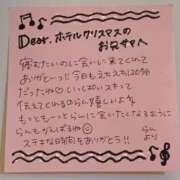 Dear. ホテルクリスマスの
お兄サマへ
寝むたいのに会いに来てくれて
ありがとーっ♡今日もうちえちに120分
だったね♡いっしょのスキって
伝えてくれるから嬉しいよ♡
もっともーっとらんに会いたくなるように
らんもがんばるね☺
ステキな時間をありがとう!!
らん
より